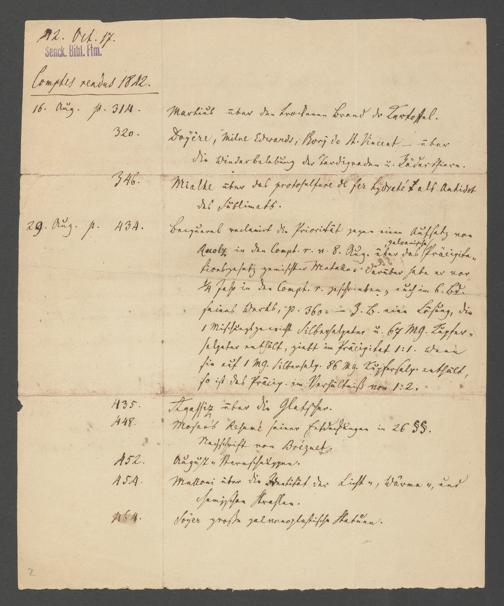 42. Oct. 17.
Senck. Bibl. Ffm.
Comptes rendus 1842.
16. Aug. p. 314. Martius über den trockenen Brand der Kartoffel.
320. Doyère, Milne Edwards, Bory de St. Vincent — über
die Wiederbelebung der Tardigraden u. Räderthiere.
346. Mialhe über das protosulfure de fer hydraté als Antidot
des Sublimats.
29. Aug. p. 434. Becquerel reclamirt die Priorität gegen einen Aufsatz von
Ruolz in den Compt. r. v. 8. Aug. über das galvanische Präcipita-
tionsgesetz gemischter Metalle. Darüber habe er vor
Jahr in den Compt. r. geschrieben, auch im 6. Bd.
seines Werks, p. 360. — Z. B. eine Lösung, die
1 Mischungsgewicht Silbersalpeter u. 64 MG. Kupfer-
salpeter enthält, giebt im Präcipitat 1:1. wenn
sie auf 1 MG. Silbersalp. 86 MG. Kupfersalp. enthält,
so ist das Präcip. im Verhältniß von 1:2.
435. Agassiz über die Gletscher.
448. Moser's Resumé seiner Entdeckungen in 26 §§.
Nachschrift von Breguet.
452. August's Sternschnuppen.
454. Melloni über die Identität der Licht-, Wärme-, und
chemischen Strahlen.
464. Soyer große galvanoplastische Statuen.
2